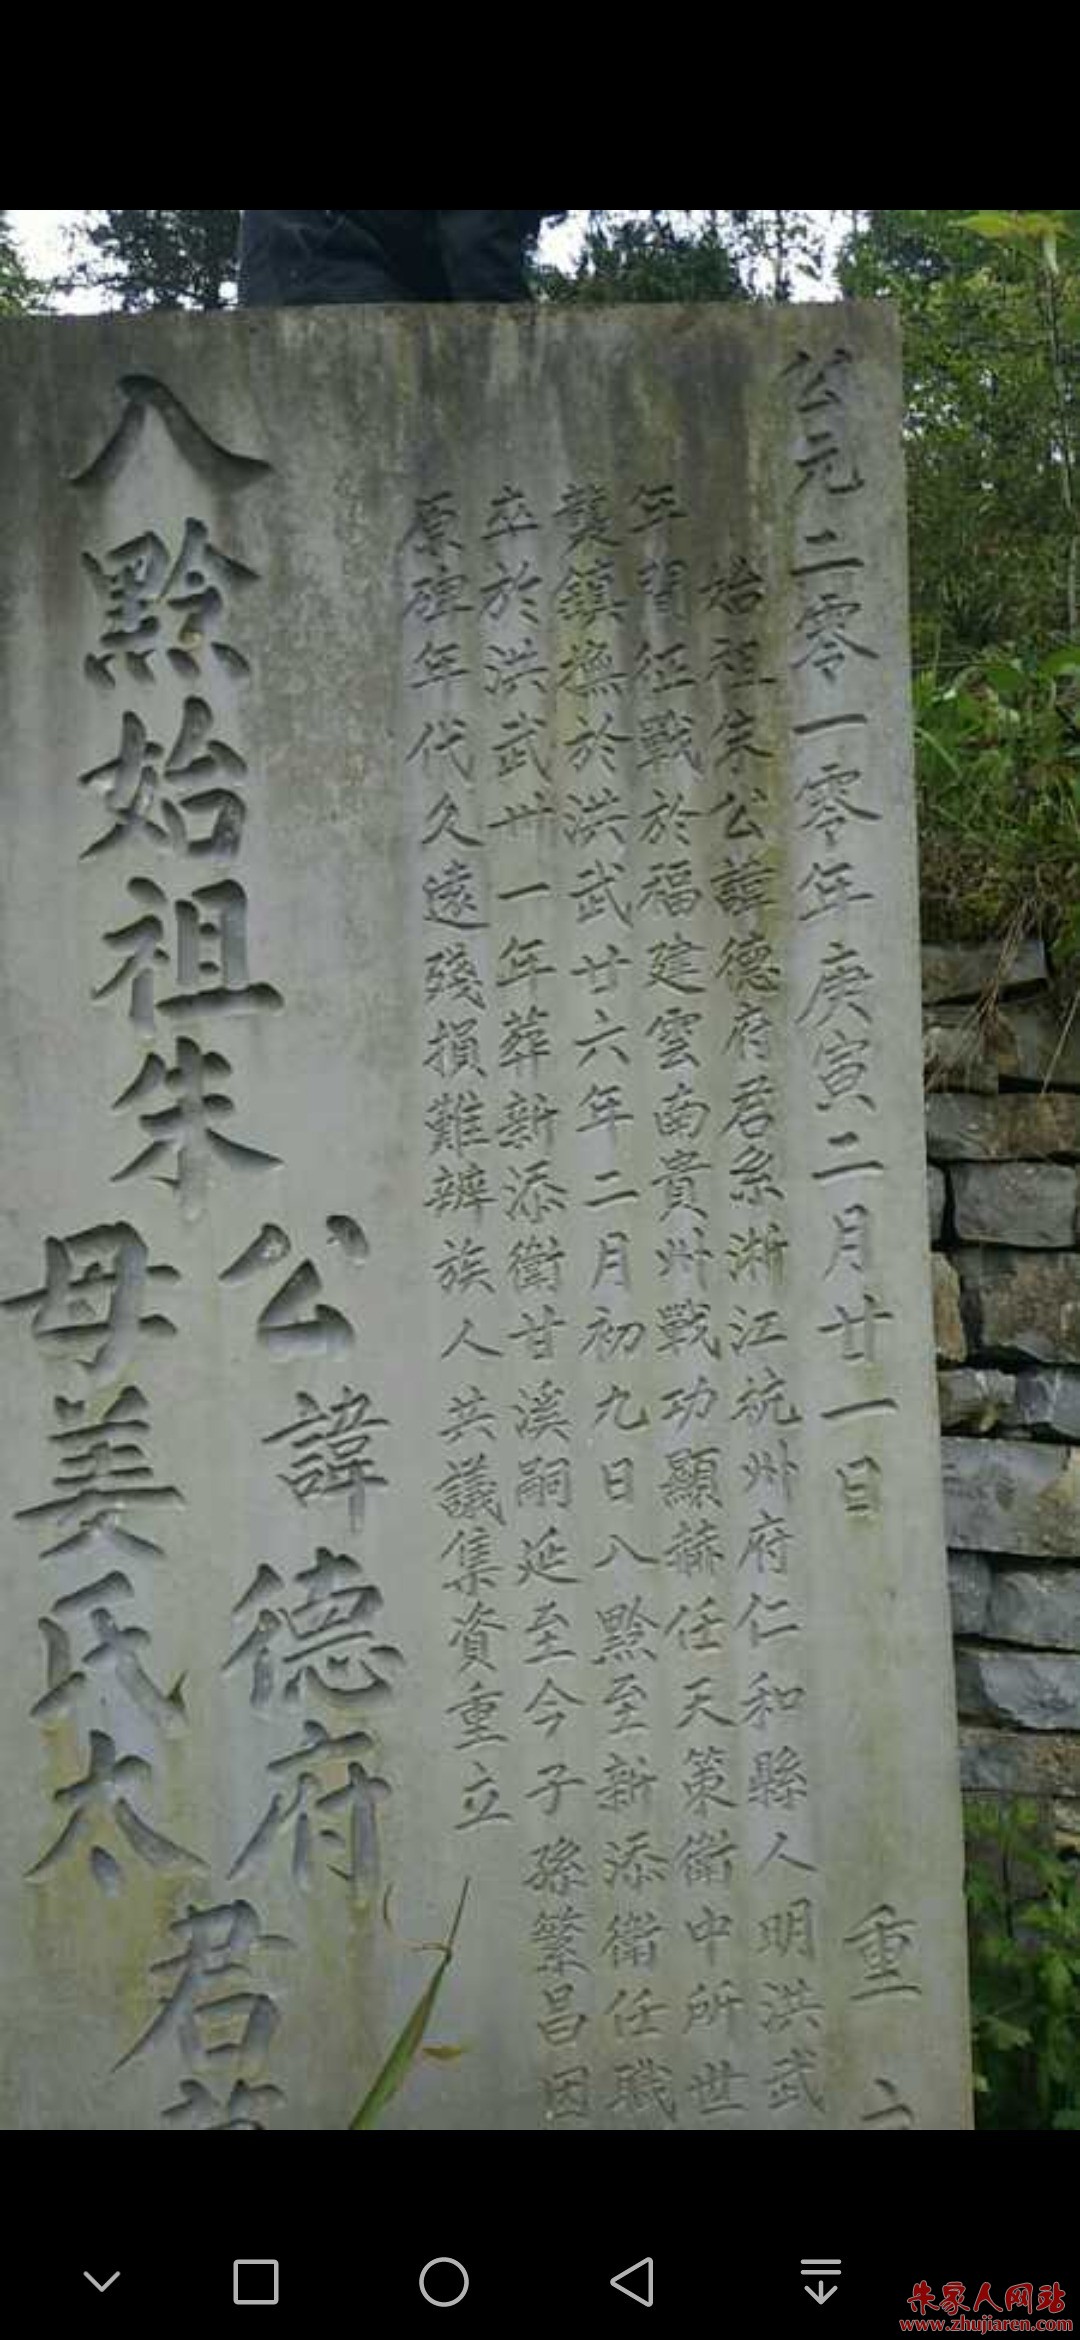 公元二零一零年庚寅二月廿一日 重立
始祖朱公諱德府君系浙江杭州府仁和縣人明洪武
年間征戰於福建雲南貴州戰功顯赫任天策衛中所世
襲鎮撫於洪武廿六年二月初九日入黔至新添衛任職
卒於洪武卅一年葬新添衛甘溪嗣延至今子孫繁昌因
原碑年代久遠殘損難辨族人共議集資重立
入黔始祖朱
公諱德府
母姜氏太
君
朱家人网站
www.zhujiaren.com